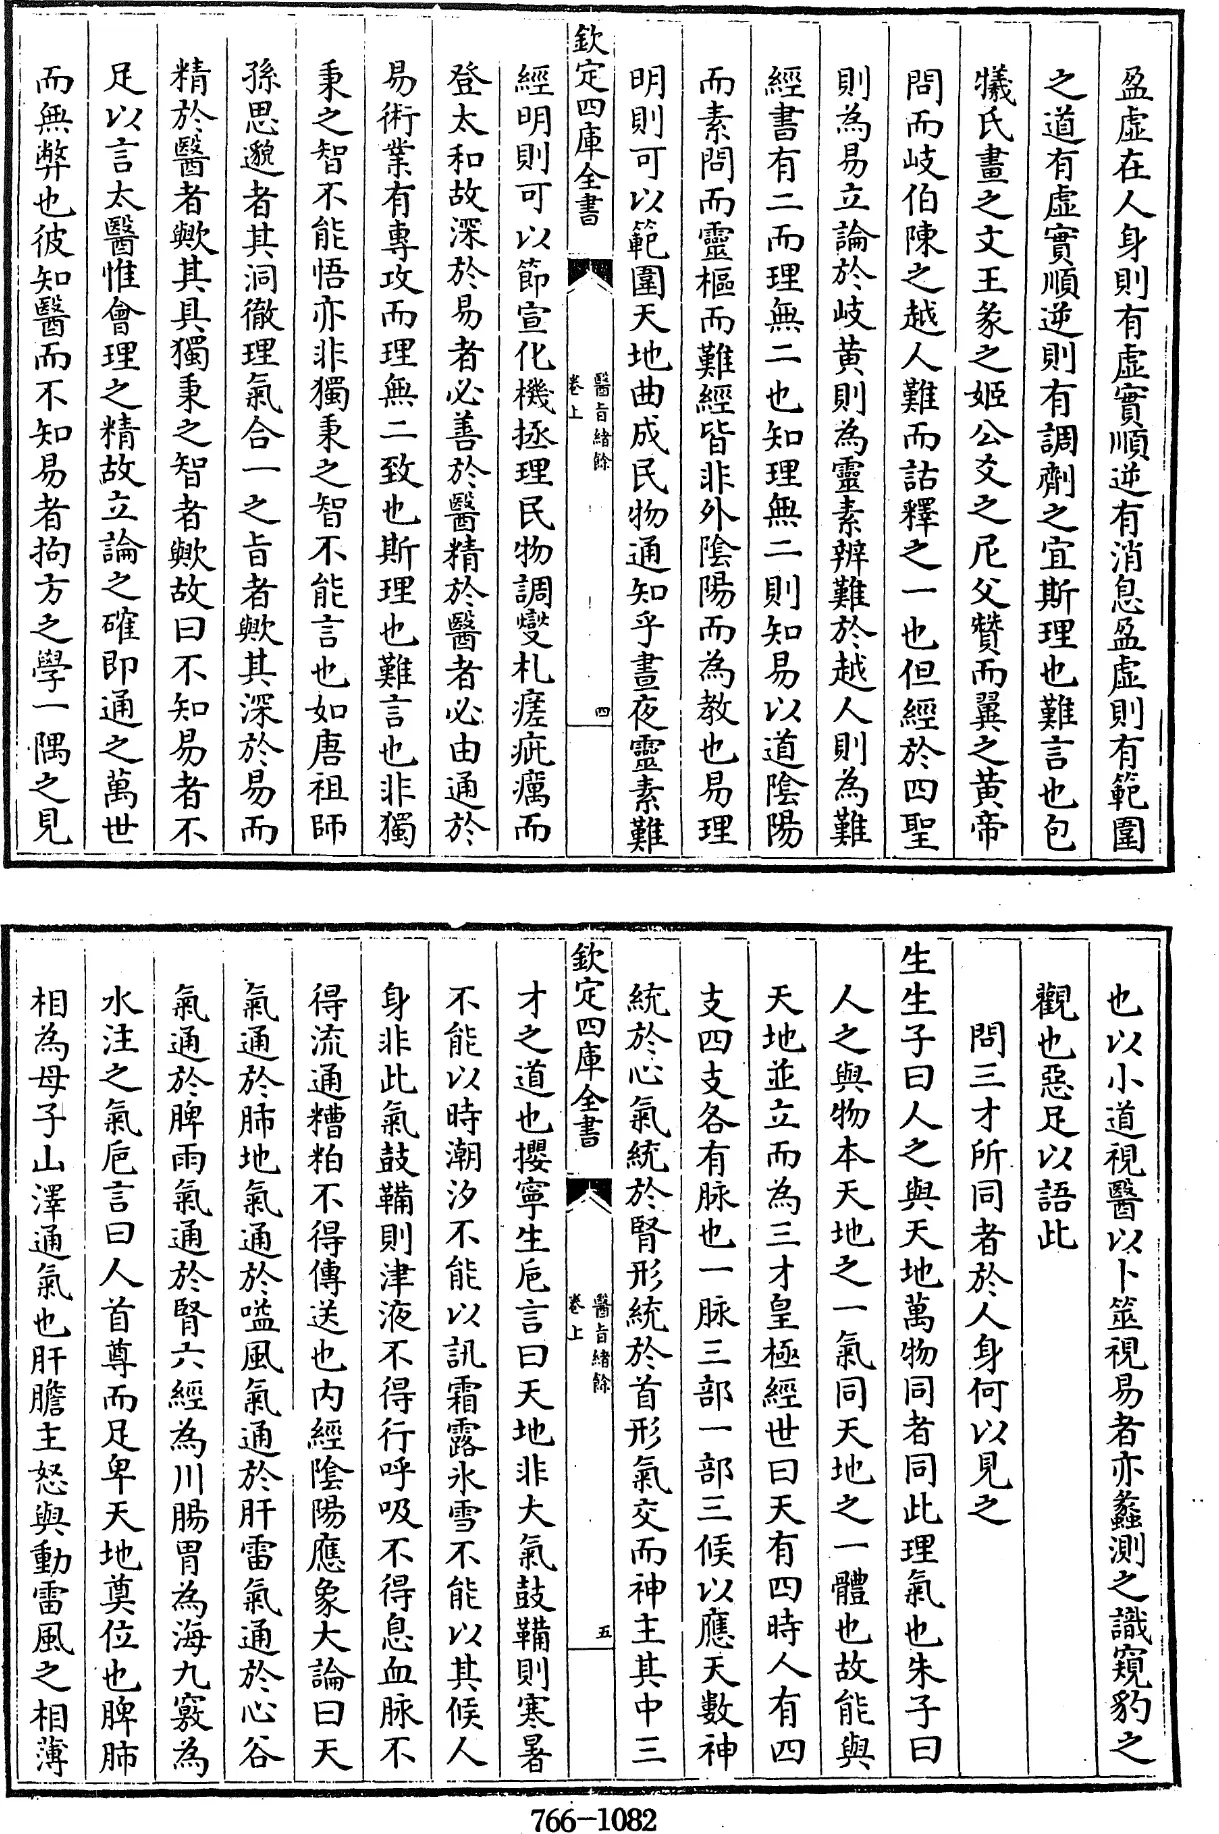 盈虛在人身則有虛實順逆有消息盈虛則有範圍
之道有虛實順逆則有調劑之宜斯理也難言也包
犧氏畫之文王彖之姬公爻之尼父贊而翼之黄帝
問而岐伯陳之越人難而詁釋之一也但經於四聖
則為易立論於岐黄則為靈素辨難於越人則為難
經書有二而理無二也知理無二則知易以道陰陽
而素問而靈樞而難經皆非外陰陽而為教也易理
明則可以範圍天地曲成民物通知乎晝夜靈素難
欽定四庫全書
醫旨緒餘
卷上
四
經明則可以節宣化機拯理民物調燮札瘥疵癘而
登太和故深於易者必善於醫精於醫者必由通於
易術業有專攻而理無二致也斯理也難言也非獨
秉之智不能悟亦非獨秉之智不能言也如唐祖師
孫思邈者其洞徹理氣合一之旨者歟其深於易而
精於醫者歟其具獨秉之智者歟故曰不知易者不
足以言太醫惟會理之精故立論之確即通之萬世
而無弊也彼知醫而不知易者拘方之學一隅之見
也以小道視醫以卜筮視易者亦蠡測之識窺豹之
觀也惡足以語此
問三才所同者於人身何以見之
生生子曰人之與天地萬物同者同此理氣也朱子曰
人之與物本天地之一氣同天地之一體也故能與
天地並立而為三才皇極經世曰天有四時人有四
支四支各有脉也一脉三部一部三候以應天數神
統於心氣統於腎形統於首形氣交而神主其中三
欽定四庫全書
醫旨緒餘
卷上
五
才之道也攖寧生巵言曰天地非大氣鼓鞴則寒暑
不能以時潮汐不能以訊霜露氷雪不能以其候人
身非此氣鼓鞴則津液不得行呼吸不得息血脉不
得流通糟粕不得傳送也内經陰陽應象大論曰天
氣通於肺地氣通於嗌風氣通於肝雷氣通於心谷
氣通於脾雨氣通於腎六經為川腸胃為海九竅為
水注之氣巵言曰人首尊而足卑天地奠位也脾肺
相為母子山澤通氣也肝膽主怒與動雷風之相薄
766-1082